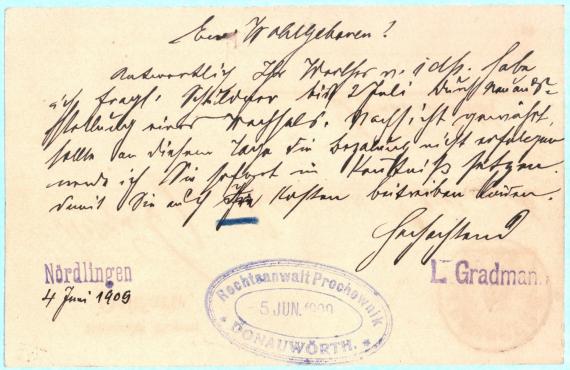 Euer Wohlgeboren!
Antwortlich Ihr Werthes v. 1 ds. habe
ich fragl. Schuldner bis 2 Juli durch Neuaus-
stellung eines Wechsels, Nachsicht gewährt,
sollte an diesem Tage die Bezahlung nicht erfolgen
werde ich Sie sofort in Kenntniß setzen.
damit Sie auf Ihre Kosten beitreiben können.
Hochachtend
Nördlingen
4 Juni 1909
L. Gradman
Rechtsanwalt Prochownik
5 JUN. 1909
* DONAUWÖRTH. *